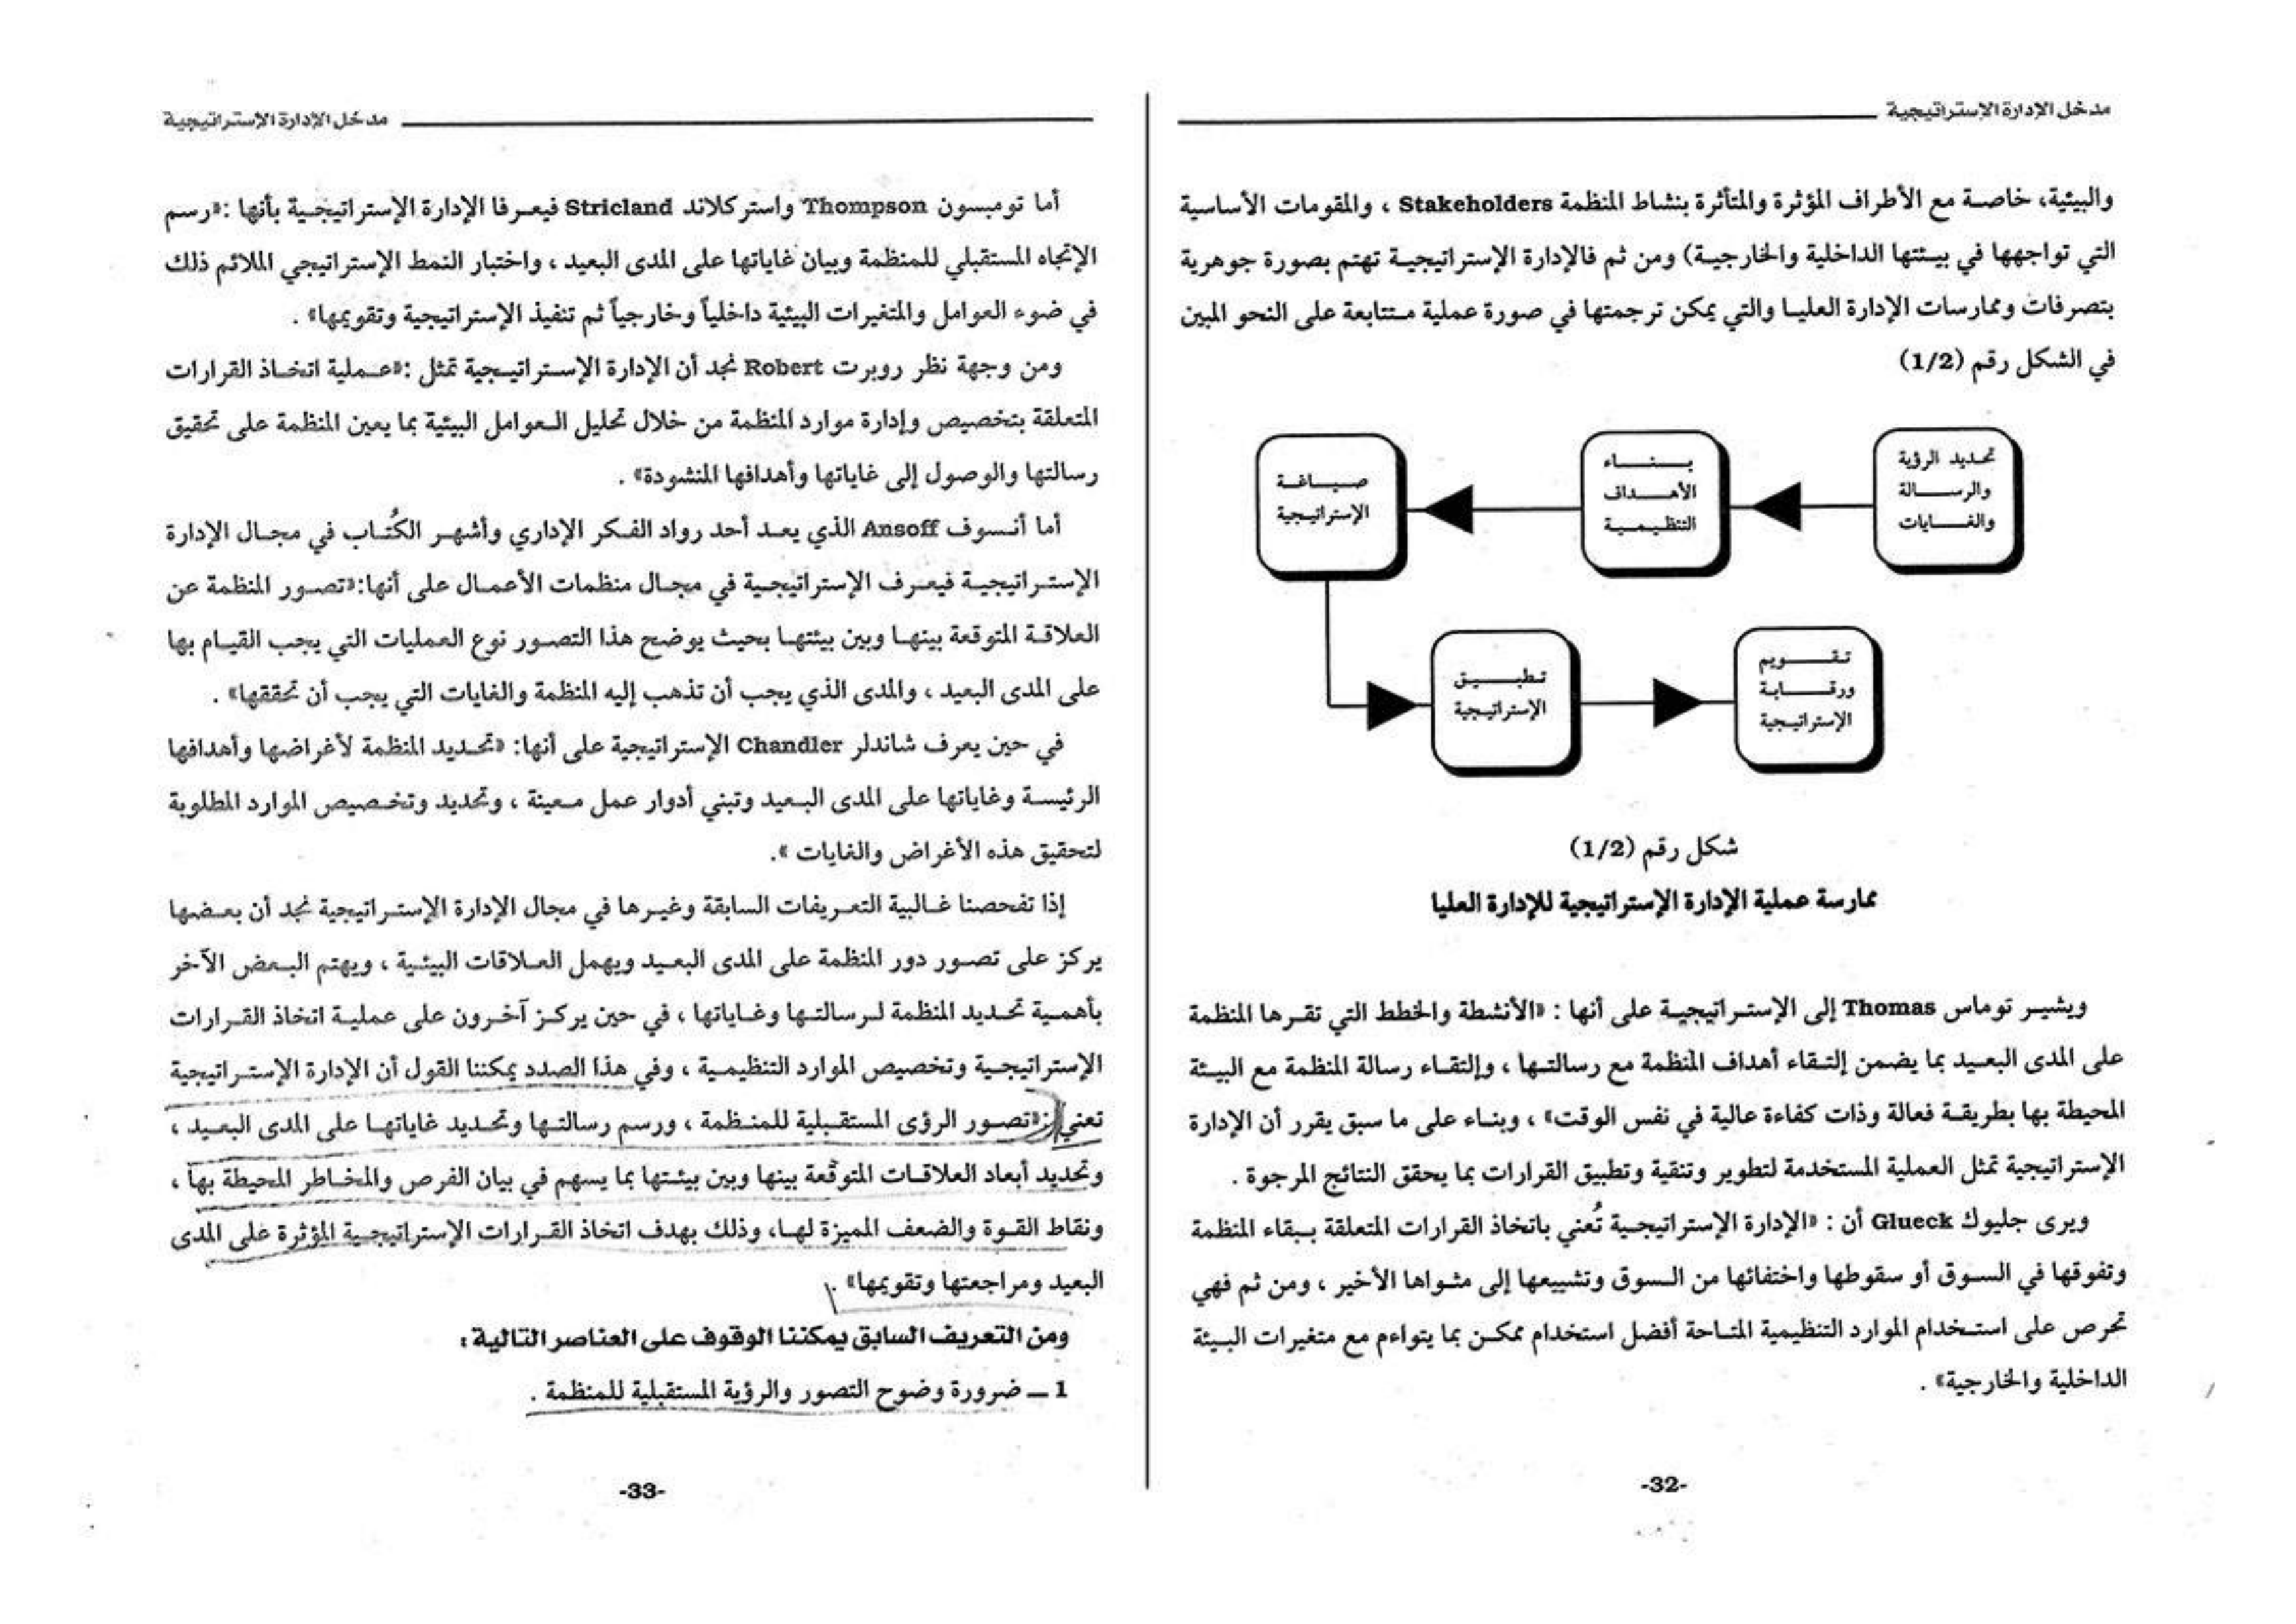 مدخل الإدارة الإستراتيجية
والبيئية، خاصة مع الأطراف المؤثرة والمتأثرة بنشاط المنظمة Stakeholders ، والمقومات الأساسية
التي تواجهها في بيئتها الداخلية والخارجية) ومن ثم فالإدارة الإستراتيجية تهتم بصورة جوهرية
بتصرفات وممارسات الإدارة العليا والتي يمكن ترجمتها في صورة عملية متتابعة على النحو المبين
في الشكل رقم (1/2)
تحديد الرؤية
والرسالة
والغايات
بناء
الأهداف
التنظيمية
صياغة
الإستراتيجية
تطبيق
الإستراتيجية
تقويم
ورقابة
الإستراتيجية
شكل رقم (1/2)
ممارسة عملية الإدارة الإستراتيجية للإدارة العليا
ويشير توماس Thomas إلى الإستراتيجية على أنها : «الأنشطة والخطط التي تقرها المنظمة
على المدى البعيد بما يضمن إلتقاء أهداف المنظمة مع رسالتها ، وإلتقاء رسالة المنظمة مع البيئة
المحيطة بها بطريقة فعالة وذات كفاءة عالية في نفس الوقت» ، وبناء على ما سبق يقرر أن الإدارة
الإستراتيجية تمثل العملية المستخدمة لتطوير وتنقية وتطبيق القرارات بما يحقق النتائج المرجوة .
ويرى جليوك Glueck أن : «الإدارة الإستراتيجية تُعني باتخاذ القرارات المتعلقة ببقاء المنظمة
وتفوقها في السوق أو سقوطها واختفائها من السوق وتشييعها إلى مثواها الأخير ، ومن ثم فهي
تحرص على استخدام الموارد التنظيمية المتاحة أفضل استخدام ممكن بما يتواءم مع متغيرات البيئة
الداخلية والخارجية» .
-32-
مدخل الإدارة الإستراتيجية
أما تومبسون Thompson واستركلاند Stricland فيعرفا الإدارة الإستراتيجية بأنها :«رسم
الإتجاه المستقبلي للمنظمة وبيان غاياتها على المدى البعيد ، واختبار النمط الإستراتيجي الملائم ذلك
في ضوء العوامل والمتغيرات البيئية داخلياً وخارجياً ثم تنفيذ الإستراتيجية وتقويمها» .
ومن وجهة نظر روبرت Robert نجد أن الإدارة الإستراتيجية تمثل :«عملية اتخاذ القرارات
المتعلقة بتخصيص وإدارة موارد المنظمة من خلال تحليل العوامل البيئية بما يعين المنظمة على تحقيق
رسالتها والوصول إلى غاياتها وأهدافها المنشودة» .
أما أنسوف Ansoff الذي يعد أحد رواد الفكر الإداري وأشهر الكُتاب في مجال الإدارة
الإستراتيجية فيعرف الإستراتيجية في مجال منظمات الأعمال على أنها:«تصور المنظمة عن
العلاقة المتوقعة بينها وبين بيئتها بحيث يوضح هذا التصور نوع العمليات التي يجب القيام بها
على المدى البعيد ، والمدى الذي يجب أن تذهب إليه المنظمة والغايات التي يجب أن تحققها» .
في حين يعرف شاندلر Chandler الإستراتيجية على أنها: «تحديد المنظمة لأغراضها وأهدافها
الرئيسة وغاياتها على المدى البعيد وتبني أدوار عمل معينة ، وتحديد وتخصيص الموارد المطلوبة
لتحقيق هذه الأغراض والغايات ».
إذا تفحصنا غالبية التعريفات السابقة وغيرها في مجال الإدارة الإستراتيجية نجد أن بعضها
يركز على تصور دور المنظمة على المدى البعيد ويهمل العلاقات البيئية ، ويهتم البعض الآخر
بأهمية تحديد المنظمة لرسالتها وغاياتها ، في حين يركز آخرون على عملية اتخاذ القرارات
الإستراتيجية وتخصيص الموارد التنظيمية ، وفي هذا الصدد يمكننا القول أن الإدارة الإستراتيجية
تعني :«تصور الرؤى المستقبلية للمنظمة ، ورسم رسالتها وتحديد غاياتها على المدى البعيد ،
وتحديد أبعاد العلاقات المتوقعة بينها وبين بيئتها بما يسهم في بيان الفرص والمخاطر المحيطة بها ،
ونقاط القوة والضعف المميزة لها، وذلك بهدف اتخاذ القرارات الإستراتيجية المؤثرة على المدى
البعيد ومراجعتها وتقويمها» .
ومن التعريف السابق يمكننا الوقوف على العناصر التالية :
1 ــ ضرورة وضوح التصور والرؤية المستقبلية للمنظمة .
-33-